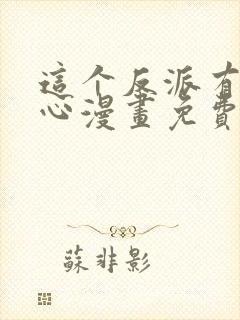 這个反派有
心漫畫免費
蘇非影